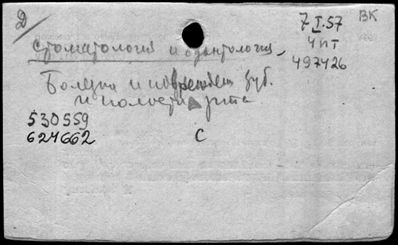 Д
7.I.57
ВК
стоматология и одонтология
4 пт
497426
Болезни и поврежден. зуб.
и полости рта
530559
624662
с